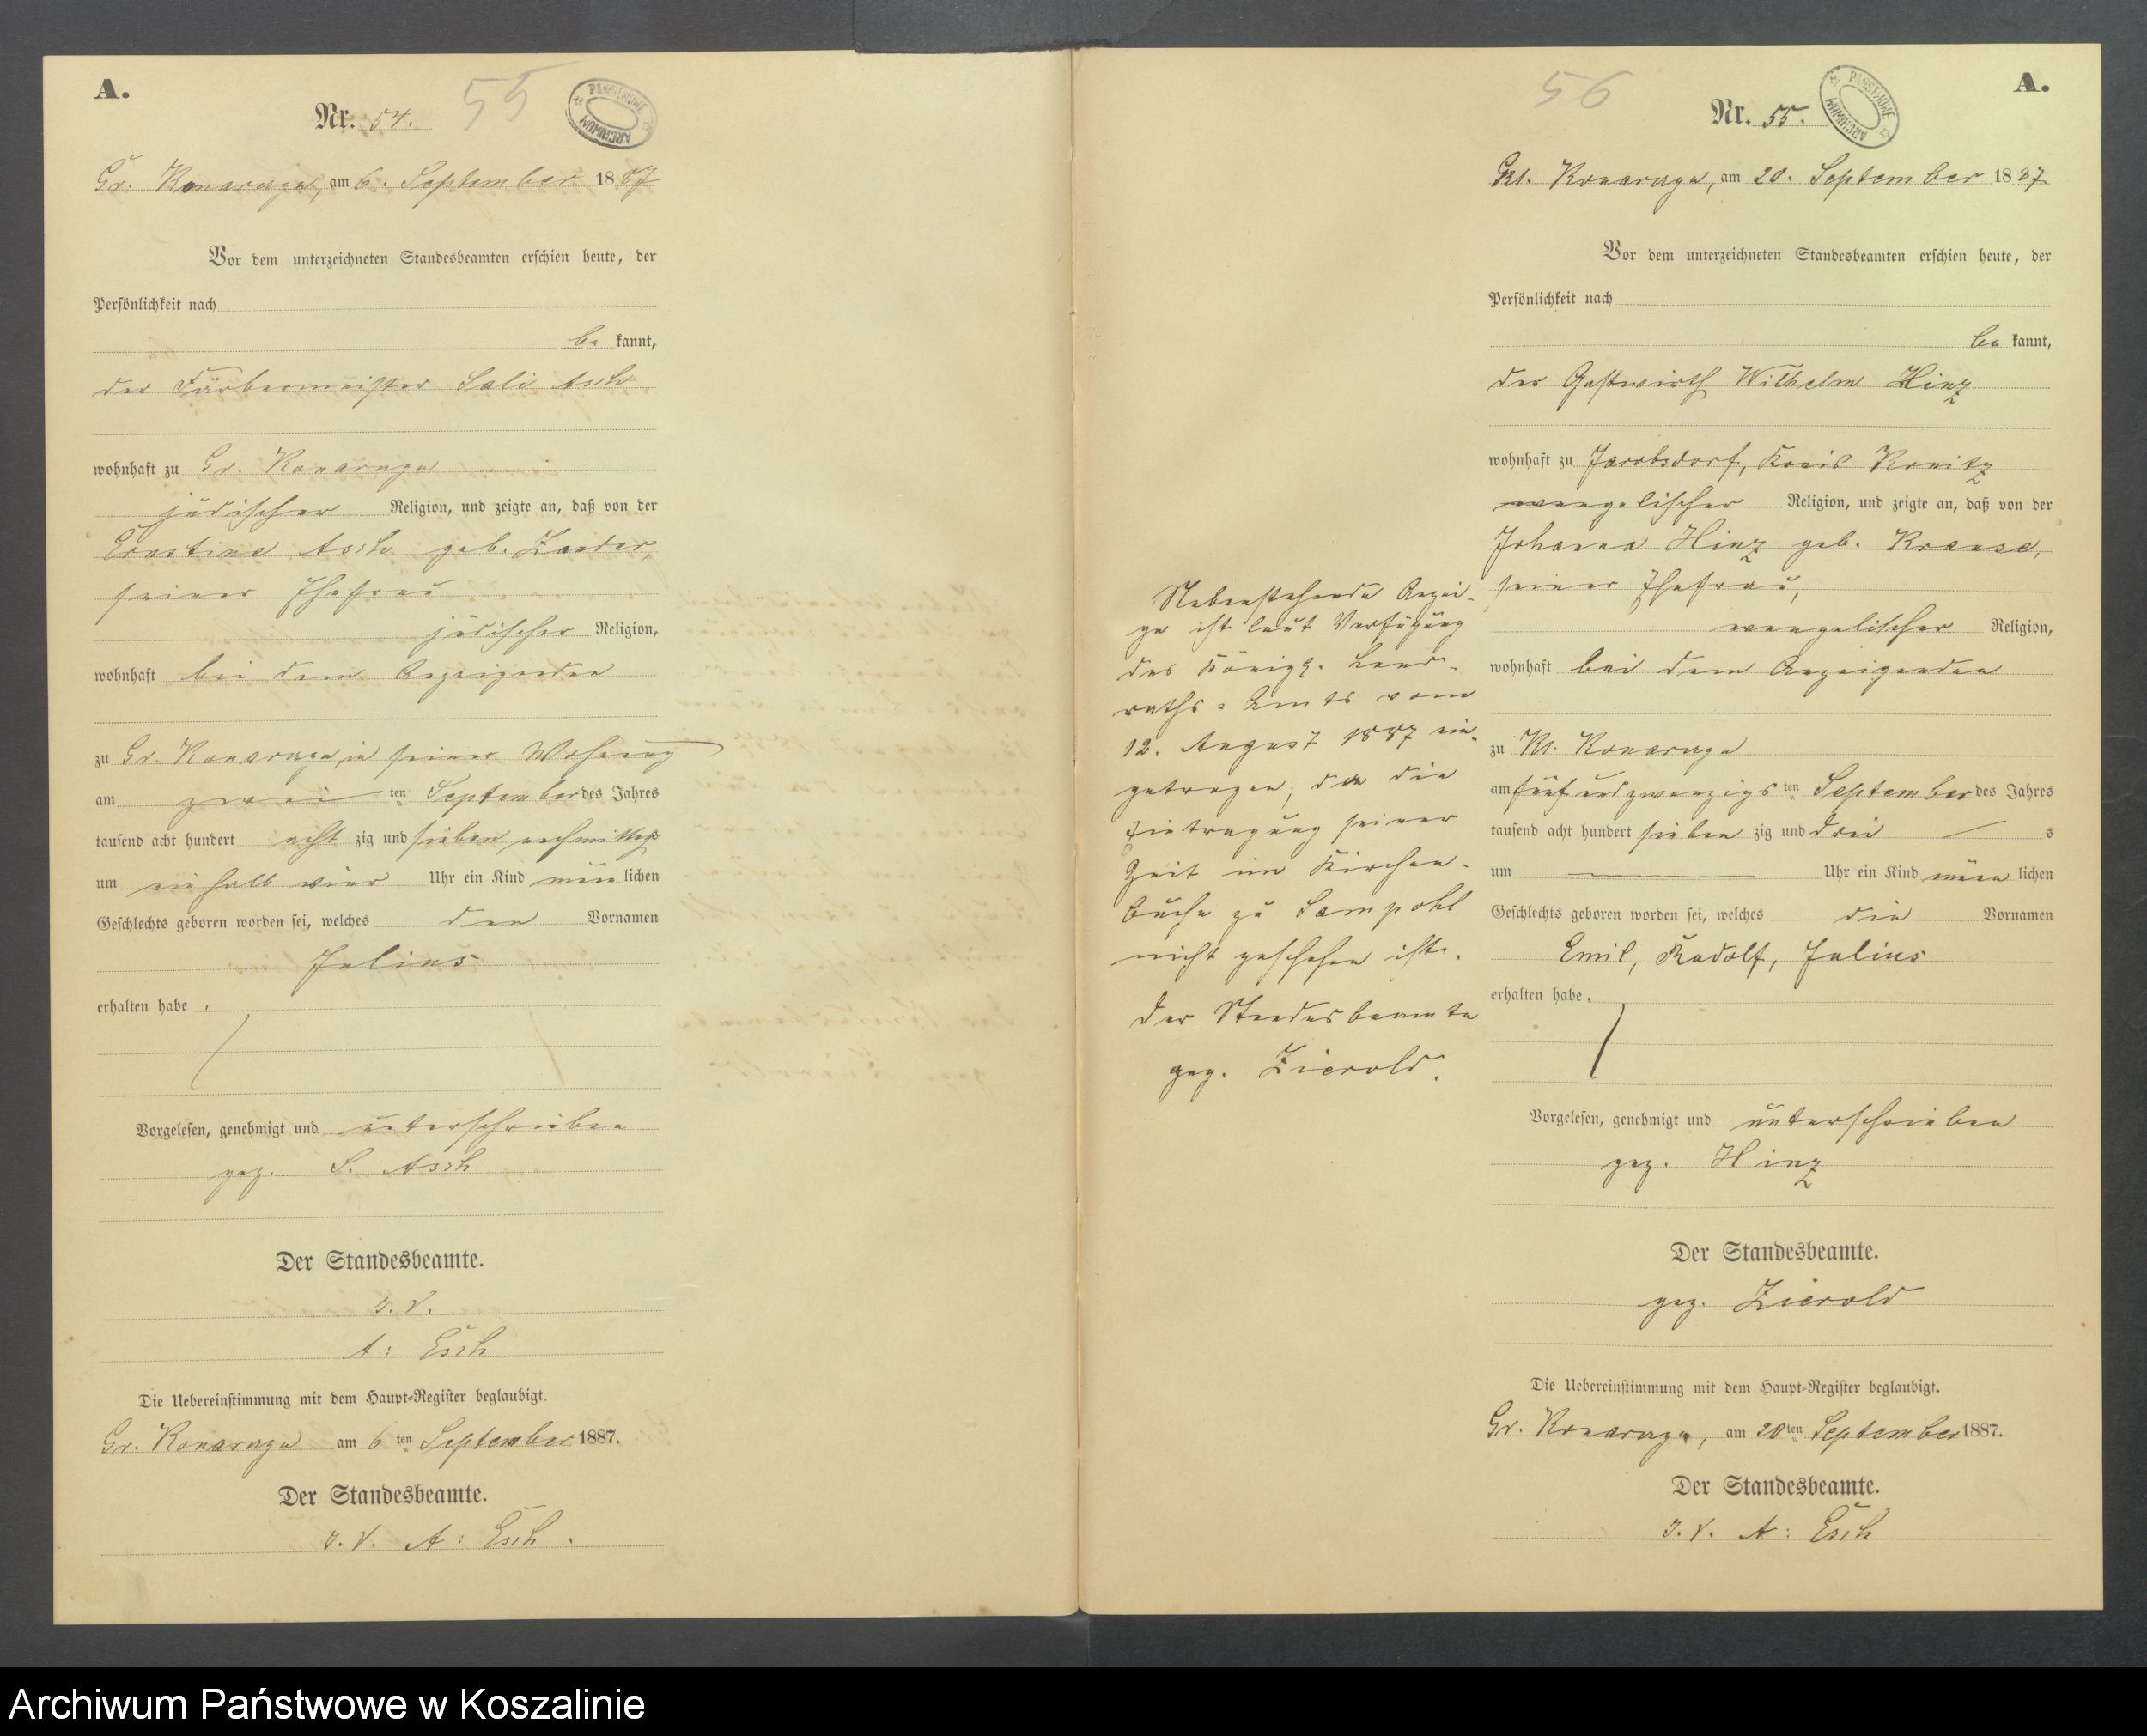 A.
Nr. 54.
55
PAŃSTWOWE ARCHIWUM
Gr. Konarzyn, am 6. September 1887
Vor dem unterzeichneten Standesbeamten erschien heute, der
Persönlichkeit nach
be kannt,
der Färbermeister Sali Asch
wohnhaft zu Gr. Konarzyn
jüdischer Religion, und zeigte an, daß von der
Ernestine Asch geb. Zander,
seiner Ehefrau
jüdischer Religion,
wohnhaft bei dem Anzeigenden
zu Gr. Konarzyn in seiner Wohnung
am zwei ten September des Jahres
tausend acht hundert acht zig und sieben nachmittags
um ein halb vier Uhr ein Kind männ lichen
Geschlechts geboren worden sei, welches den Vornamen
Julius
erhalten habe.
Vorgelesen, genehmigt und unterschrieben
gez. S. Asch
Der Standesbeamte.
I. V.
A: Esch
Die Uebereinstimmung mit dem Haupt-Register beglaubigt.
Gr. Konarzyn am 6 ten September 1887.
Der Standesbeamte.
I. V. A: Esch.
A.
56
Nr. 55.
PAŃSTWOWE ARCHIWUM
Kl. Konarzyn, am 20. September 1887
Vor dem unterzeichneten Standesbeamten erschien heute, der
Persönlichkeit nach
be kannt,
der Gastwirth Wilhelm Hinz
wohnhaft zu Jacobsdorf, Kreis Konitz
evangelischer Religion, und zeigte an, daß von der
Johanna Hinz geb. Krause,
seiner Ehefrau,
evangelischer Religion,
wohnhaft bei dem Anzeigenden
zu Kl. Konarzyn
am fünf und zwanzigs ten September des Jahres
tausend acht hundert sieben zig und drei s
um Uhr ein Kind männ lichen
Geschlechts geboren worden sei, welches die Vornamen
Emil, Rudolf, Julius
erhalten habe.
Vorgelesen, genehmigt und unterschrieben
gez. Hinz
Der Standesbeamte.
gez. Zierold
Die Uebereinstimmung mit dem Haupt-Register beglaubigt.
Gr. Konarzyn, am 20 ten September 1887.
Der Standesbeamte.
I. V. A: Esch
Nebenstehende Anzei-
ge ist laut Verfügung
des Königl. Land-
raths-Amts vom
12. August 1887 ein-
getragen, da die
Eintragung seiner
Zeit im Kirchen-
buche zu Sampohl
nicht geschehen ist.
Der Standesbeamte
gez. Zierold.
Archiwum Państwowe w Koszalinie